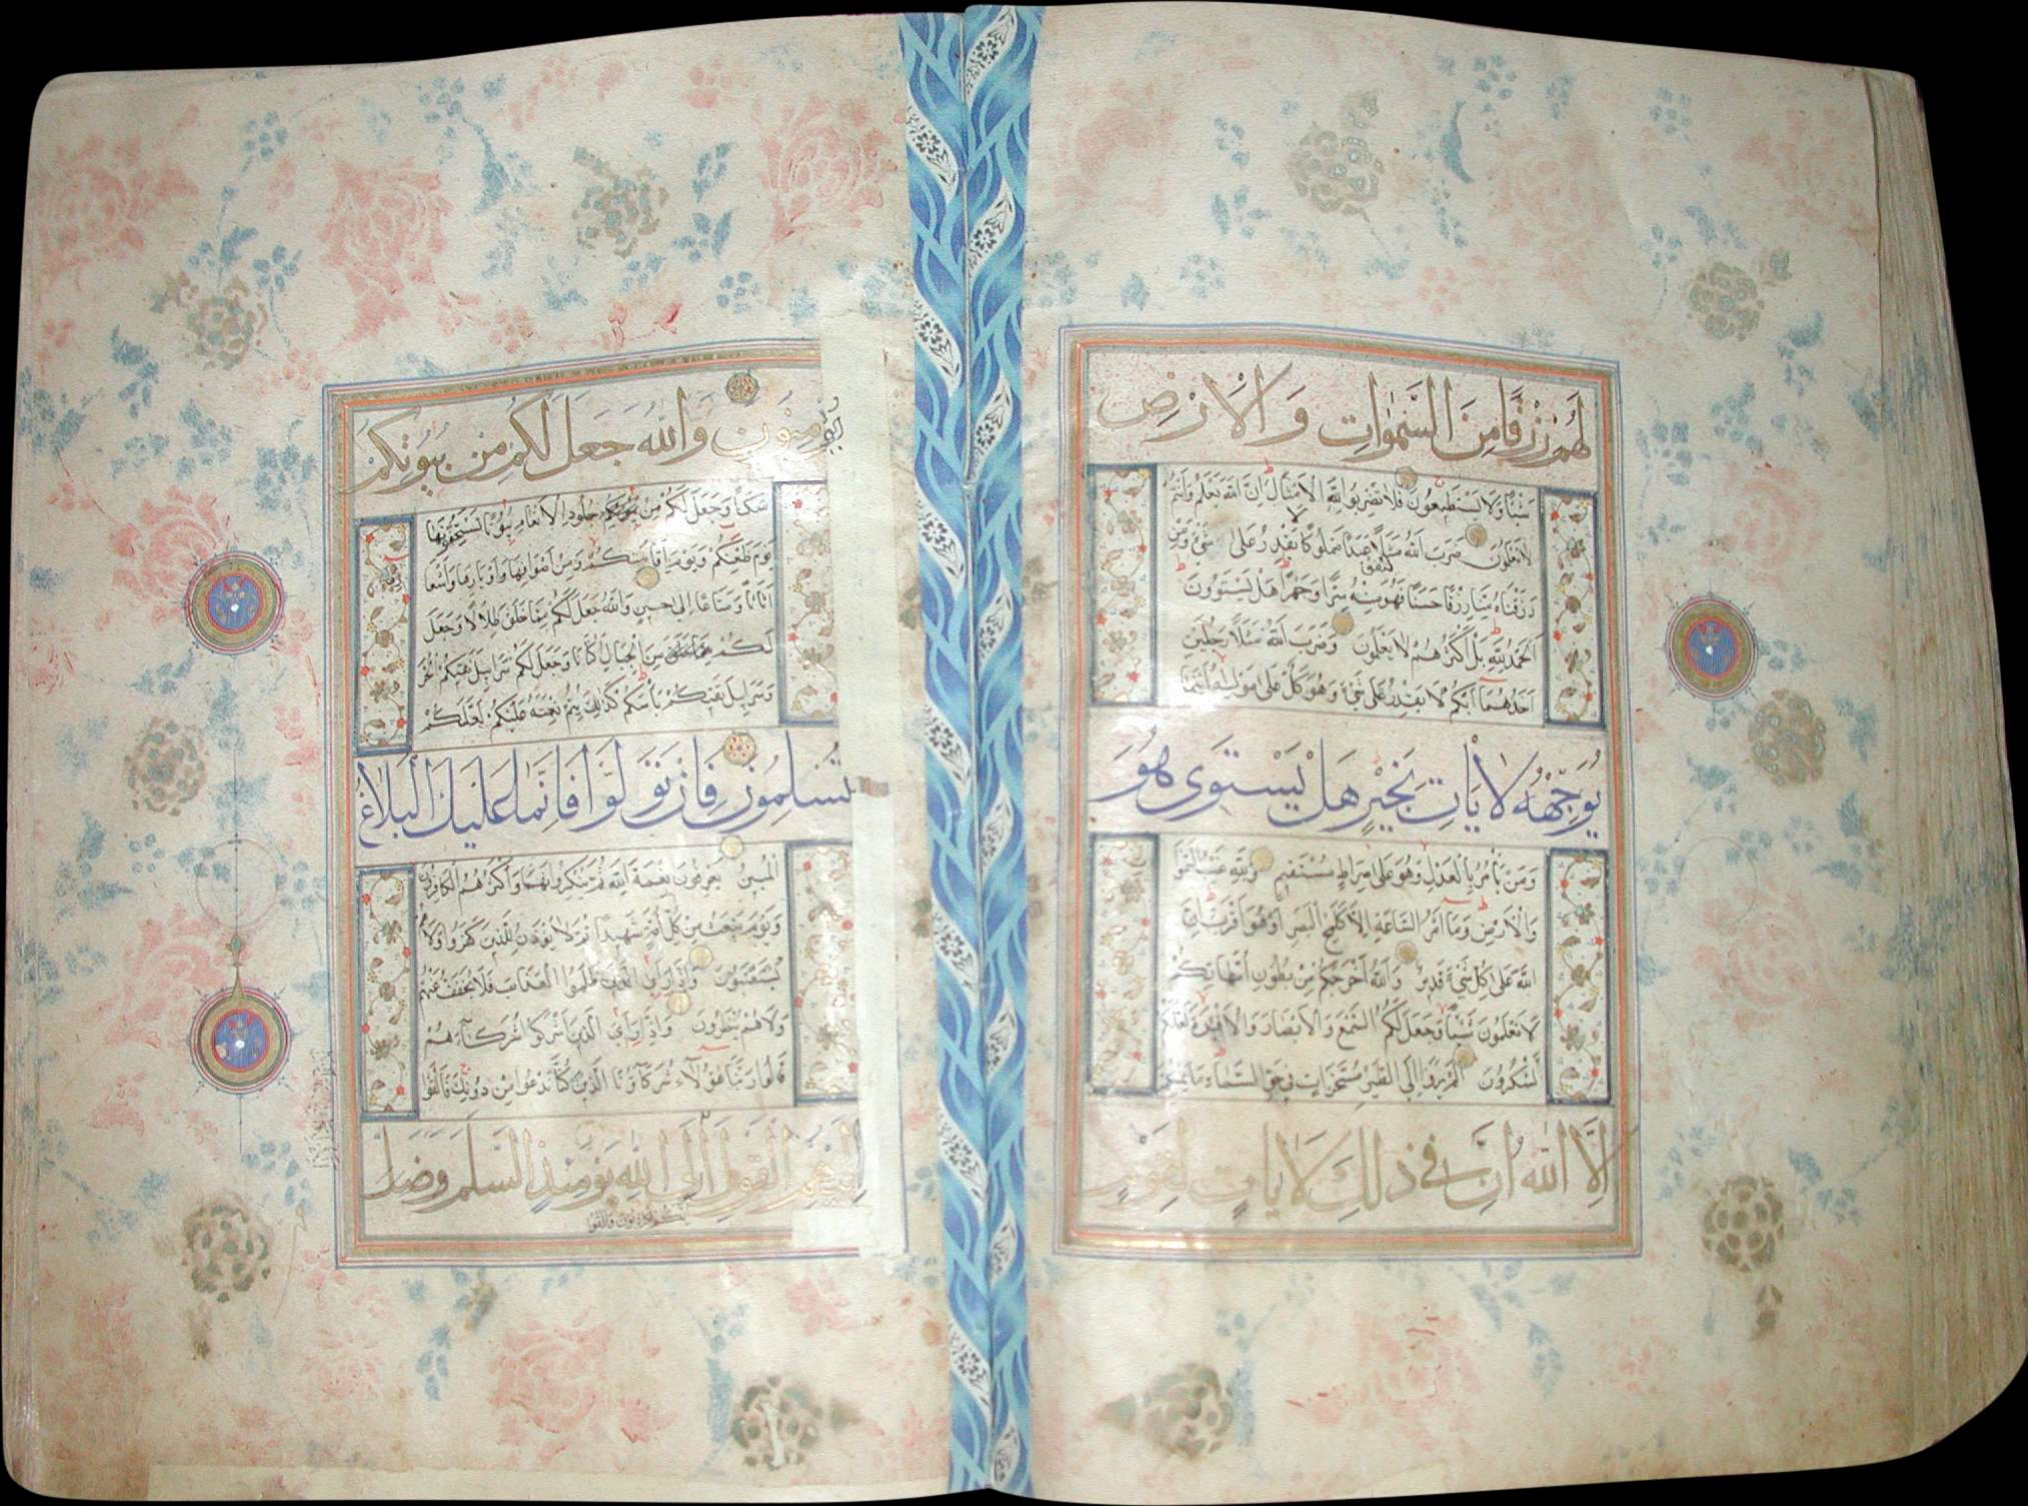 لهم رزقا من السموات والارض
شيئا ولا يستطيعون فلا تضربوا لله الامثال ان الله يعلم وانتم
لا تعلمون ضرب الله مثلا عبدا مملوكا لا يقدر على شيء ومن
رزقناه منا رزقا حسنا فهو ينفق منه سرا وجهرا هل يستوون
الحمد لله بل اكثرهم لا يعلمون وضرب الله مثلا رجلين
احدهما ابكم لا يقدر على شيء وهو كل على موليه اينما
يوجهه لا يات بخير هل يستوى هو
ومن يأمر بالعدل وهو على صراط مستقيم ولله غيب السموات
والارض وما امر الساعة الا كلمح البصر او هو اقرب ان
الله على كل شيء قدير والله اخرجكم من بطون امهاتكم
لا تعلمون شيئا وجعل لكم السمع والابصار والافئدة لعلكم
تشكرون الم يروا الى الطير مسخرات في جو السماء ما يمسكهن
الا الله ان في ذلك لايات لقوم
يؤمنون والله جعل لكم من بيوتكم
سكنا وجعل لكم من جلود الانعام بيوتا تستخفونها
يوم ظعنكم ويوم اقامتكم ومن اصوافها واوبارها واشعا
اثاثا ومتاعا الى حين والله جعل لكم مما خلق ظلالا وجعل
لكم من الجبال اكنانا وجعل لكم سرابيل تقيكم الحر
وسرابيل تقيكم بأسكم كذلك يتم نعمته عليكم لعلكم
تسلمون فان تولوا فانما عليك البلاغ
المبين يعرفون نعمة الله ثم ينكرونها واكثرهم الكافرون
ويوم نبعث من كل امة شهيدا ثم لا يؤذن للذين كفروا ولا هم
يستعتبون واذا راى الذين ظلموا العذاب فلا يخفف عنهم
ولا هم ينظرون واذا راى الذين اشركوا شركاءهم
قالوا ربنا هؤلاء شركاؤنا الذين كنا ندعوا من دونك فالقوا
اليهم القول الى الله يومئذ السلم وضل
انكم لكاذبون والقوا